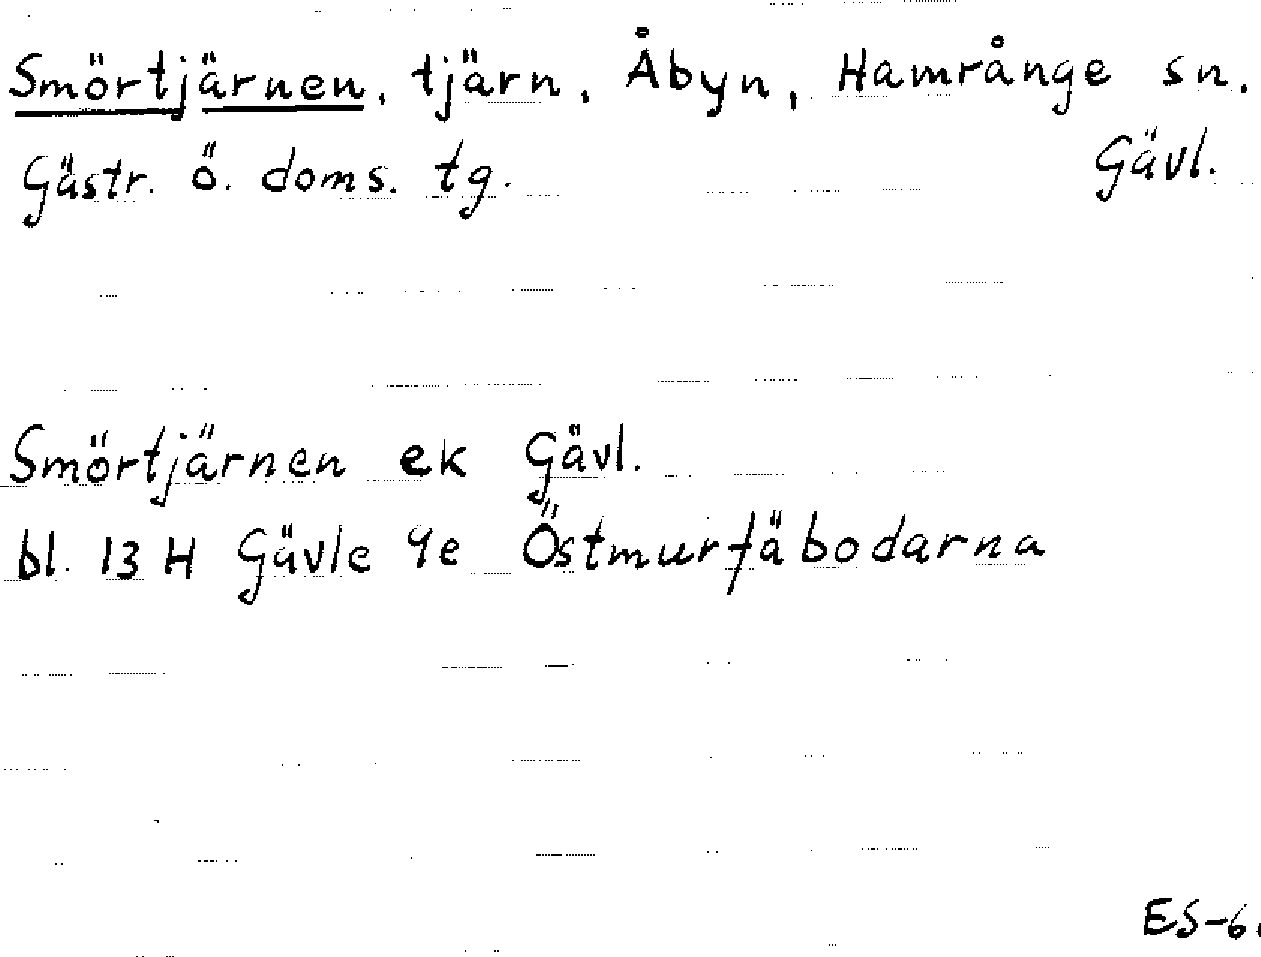 Smörtjärnen, tjärn, Åbyn, Hamrånge sn.
Gästr. ö. doms. tg. Gävl.
Smörtjärnen ek Gävl.
bl. 13 H Gävle 9e Östmurfäbodarna